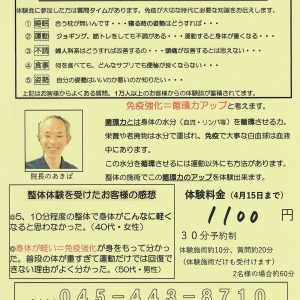 体験会に参加した方は質問タイムがあります。免疫が大切な時代に必要な知識をお伝えします。
① 睡眠 合う枕が無いんです・・寝る時の姿勢はどうすれば・・・
② 運動 ジョギング、筋トレをしても不調がある・・・運動すると身体が重くなる・・・
③ 不調 婦人科系はどうすれば改善するの・・・頭痛が改善するとは思えない・・・
④ 食事 何を食べても、どんなサプリでも便秘が良くならない・・・
⑤ 姿勢 自分の姿勢はいいのか悪いのか知りたい・・・
上記はお客様からよくある質問。1万人以上のお客様からの体験談が蓄積されてます。
免疫強化＝循環力アップと考えます。
循環力とは身体の水分（血流・リンパ等）を循環させる力。
栄養や老廃物は水分で運ばれ、免疫で大事な白血球は血液
中にあります。
この水分を循環させるには運動以外にも方法があります。
整体の施術でこの循環力アップを体験出来ます。
院長のあきば
整体体験を受けたお客様の感想
◎5、10分程度の整体で身体がこんなに軽く
なると思わなかった。（40代・女性）
◎身体が軽い＝免疫強化が身をもって分かっ
た。普段の体が重すぎて運動だけでは回復で
きない理由がよく分かった。（50代・男性）
体験料金（4月15日まで）
1100円
30分予約制
体験施術約10分、質問約20分
（体験施術だけも受けます）
2名様の場合約60分
045-443-8710